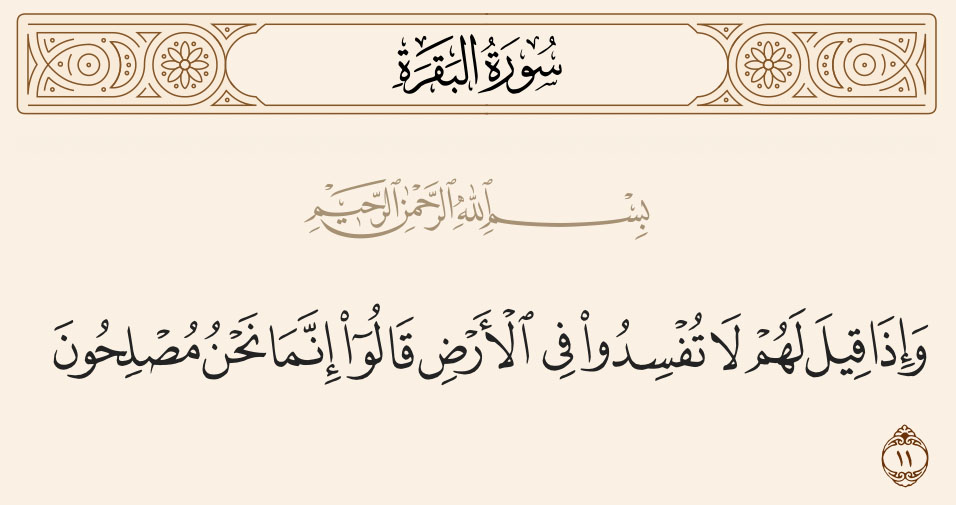 سُورَةُ البَقَرَةِ
بِسْمِ اللَّهِ الرَّحْمَٰنِ الرَّحِيمِ
وَإِذَا قِيلَ لَهُمْ لَا تُفْسِدُوا۟ فِى ٱلْأَرْضِ قَالُوٓا۟ إِنَّمَا نَحْنُ مُصْلِحُونَ
١١